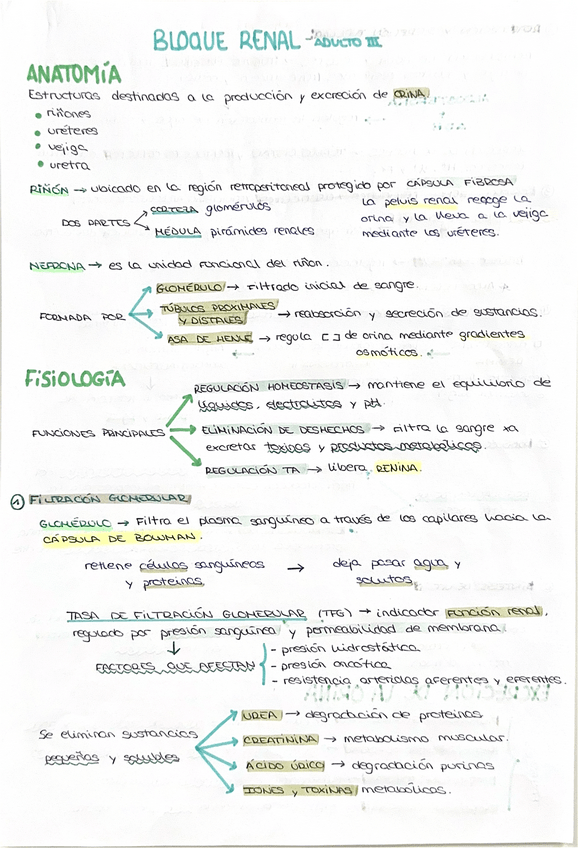 BLOQUE RENAL - ADULTO III
ANATOMÍA
Estructuras destinadas a la producción y excreción de ORINA.
• riñones
• uréteres
• vejiga
• uretra
RIÑÓN → ubicado en la región retroperitoneal protegido por CÁPSULA FIBROSA
DOS PARTES
CORTEZA glomérulos
MÉDULA pirámides renales
La pelvis renal recoge la
orina y la lleva a la vejiga
mediante los uréteres.
NEFRONA → es la unidad funcional del riñon.
FORMADA POR
GLOMÉRULO → Filtrado inicial de sangre.
TÚBULOS PROXIMALES
Y DISTALES → reabsorción y secreción de sustancias.
ASA DE HENLE → regula [ ] de orina mediante gradientes
osmóticos.
FISIOLOGÍA
FUNCIONES PRINCIPALES
REGULACIÓN HOMEOSTASIS → mantiene el equilibrio de
líquidos, electrolitos y pH.
ELIMINACIÓN DE DESHECHOS → Filtra la sangre xa
excretar toxinas y productos metabólicos.
REGULACIÓN TA → libera RENINA.
① FILTRACIÓN GLOMERULAR
GLOMÉRULO → Filtra el plasma sanguíneo a través de los capilares hacia la
CÁPSULA DE BOWMAN.
retiene células sanguíneas → deja pasar agua y
y proteínas solutos
TASA DE FILTRACIÓN GLOMERULAR (TFG) → indicador función renal,
regulado por presión sanguínea y permeabilidad de membrana
↓
FACTORES QUE AFECTAN
- presión hidrostática
- presión oncótica
- resistencia arteriolas aferentes y eferentes.
Se eliminan sustancias
pequeñas y solubles
UREA → degradación de proteínas
CREATININA → metabolismo muscular.
ÁCIDO ÚRICO → degradación purinas
IONES y TOXINAS metabólicas.